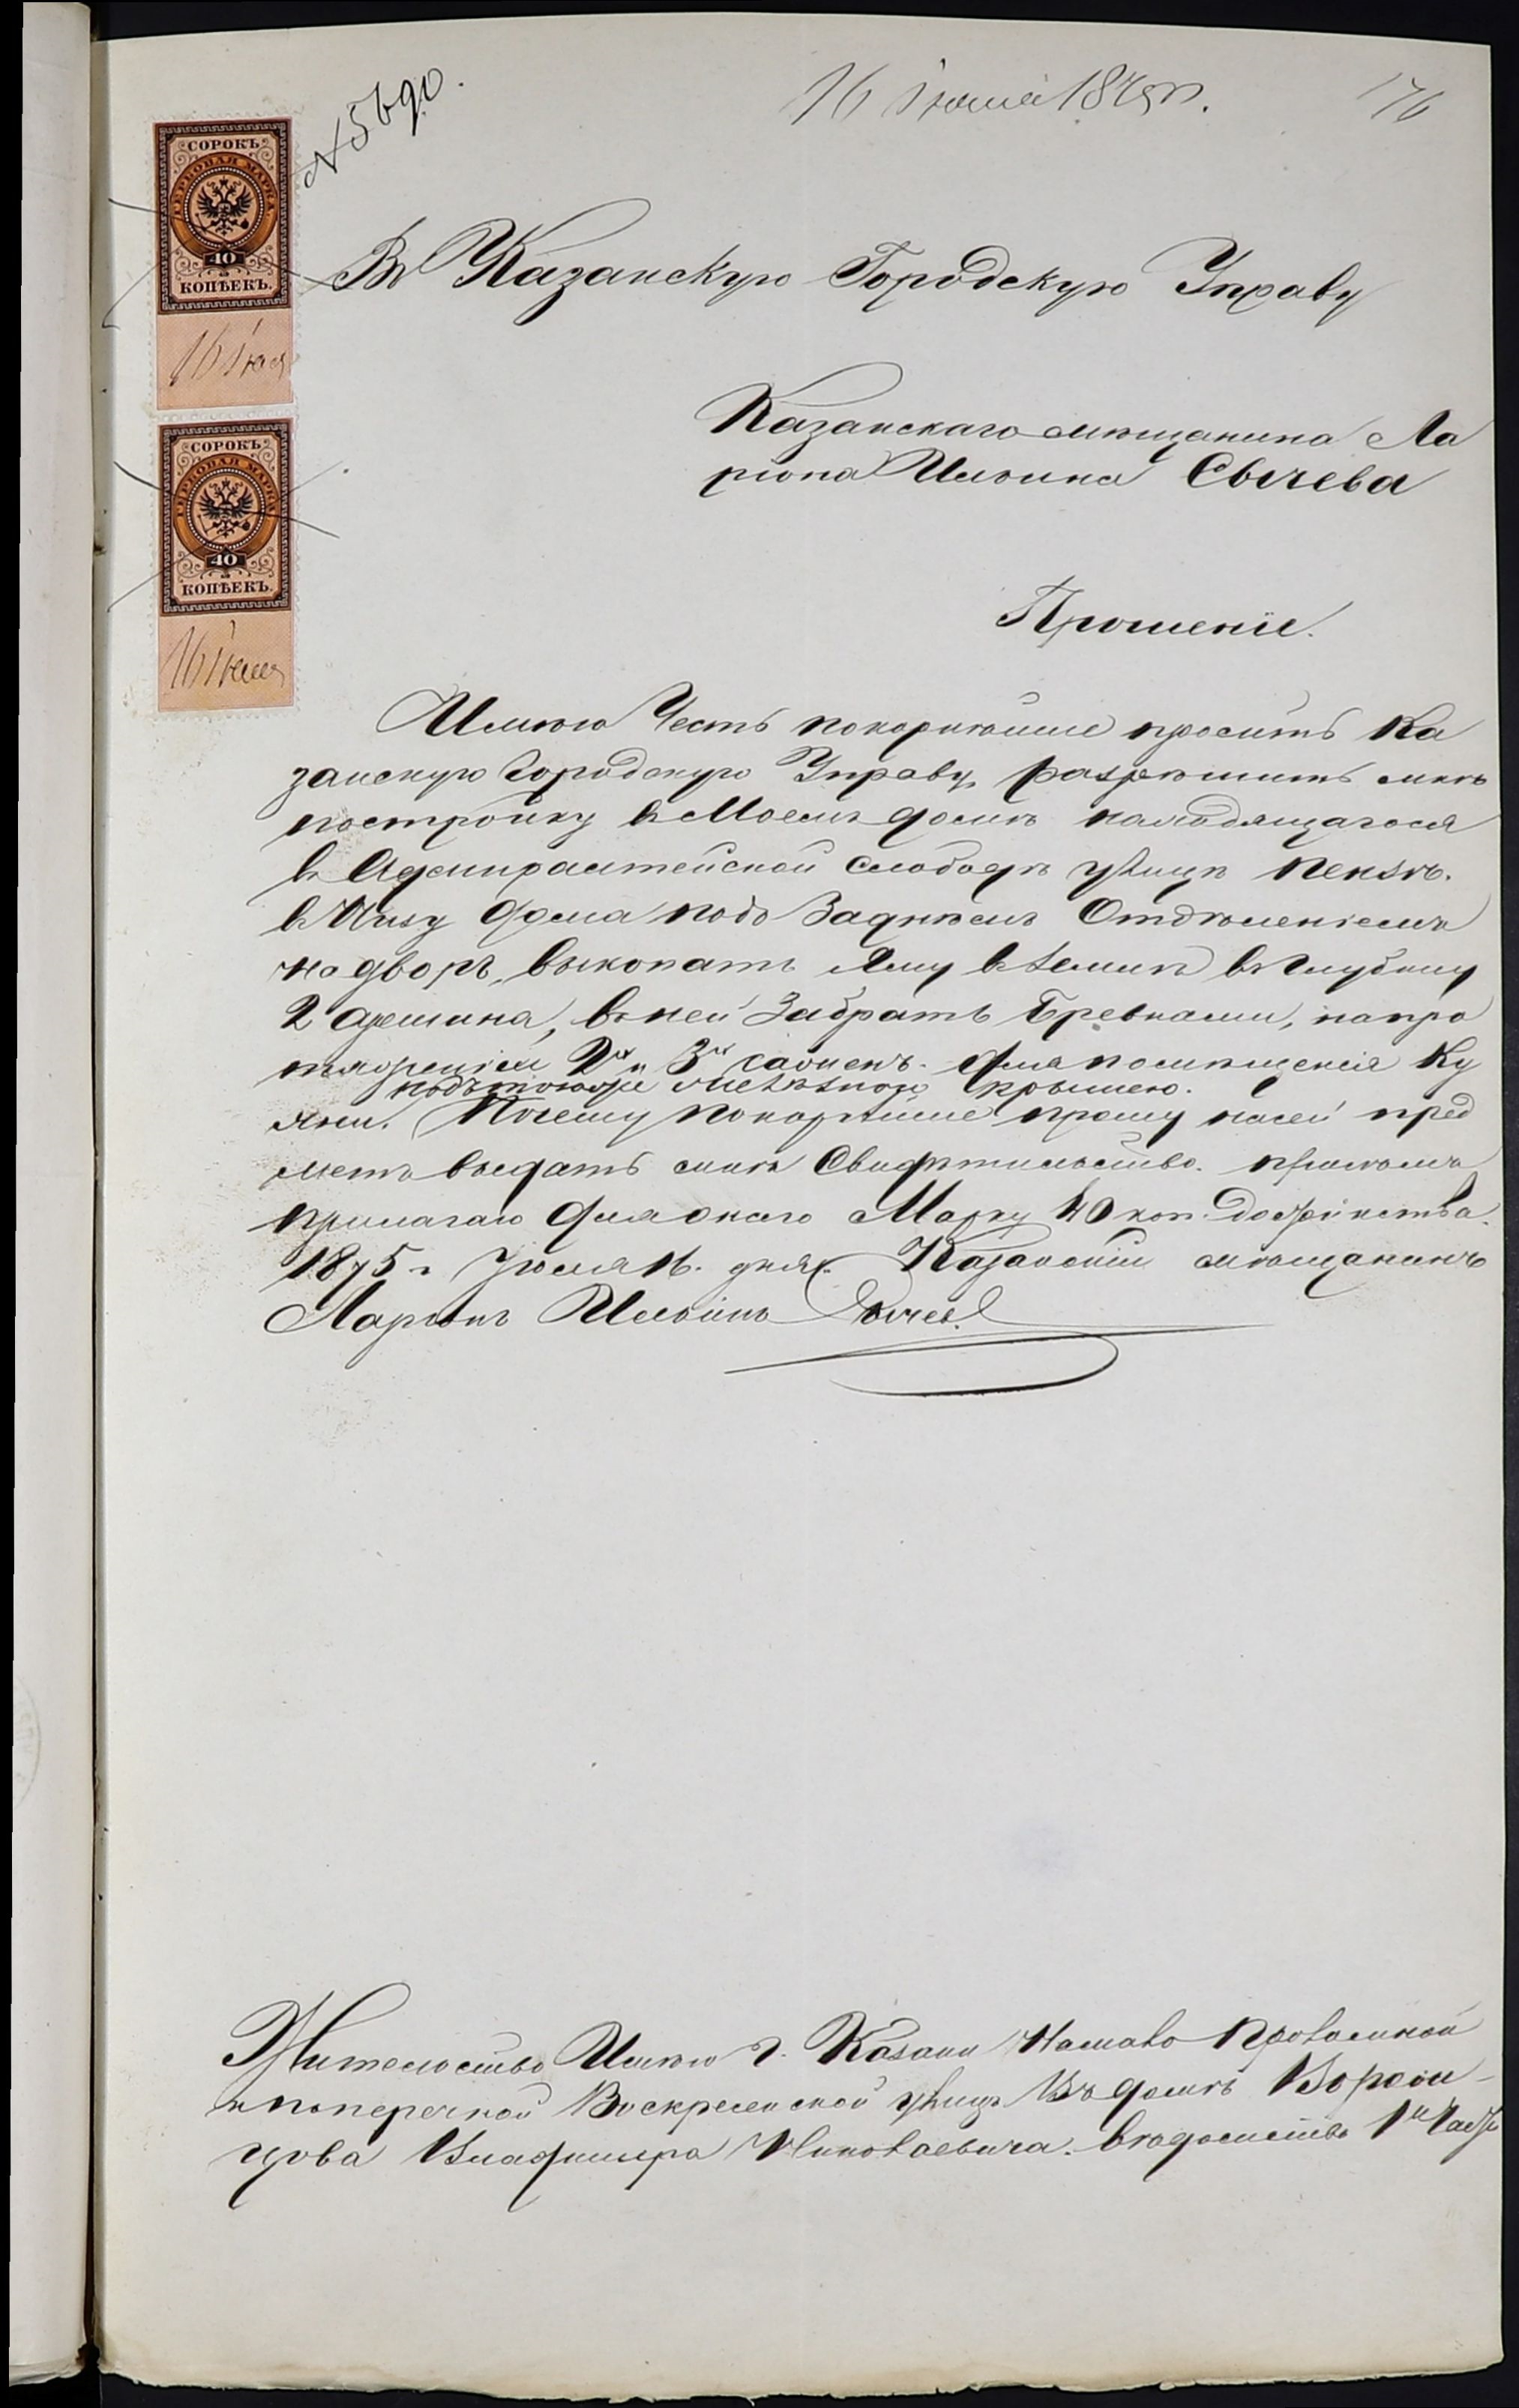 № 5690.
16 Іюля 1875 г.
176
СОРОКЪ
ГЕРБОВАЯ МАРКА
40
КОПѢЕКЪ.
16 Іюля
СОРОКЪ
ГЕРБОВАЯ МАРКА
40
КОПѢЕКЪ.
16 Іюля
Въ Казанскую Городскую Управу
Казанскаго мѣщанина Ла
ріона Ильина Сычева
Прошеніе.
Имѣю Честь покорнѣйше просить Ка
занскую Городскую Управу, разрѣшить мнѣ
постройку въ Моемъ домѣ находящагося
въ Адмиралтейской слободѣ улицѣ
в Низу дома подъ Заднѣмъ Отдѣленіемъ
на дворъ, выкопать Яму въ земли в Глубину
2 аршина, в ней Забрать Бревнами, на про
тяженіи 2х и 3х сажень. для помѣщенія Ку
подъ тоюже желѣзной крышею.
Почему покорнѣйше прошу на сей пред
метъ выдать мнѣ Свидѣтильство. при чемъ
прилагаю для онаго Марку 40 коп. достоинства.
1875 г. Іюля 16. дня. Казанскій мѣщанинъ
Ларіонъ Ильинъ Сычевъ
Жительство Имѣю г. Казани На
и поперечной Воскресенской улицѣ Въ домѣ
Владимира Николаевича. 1й Части